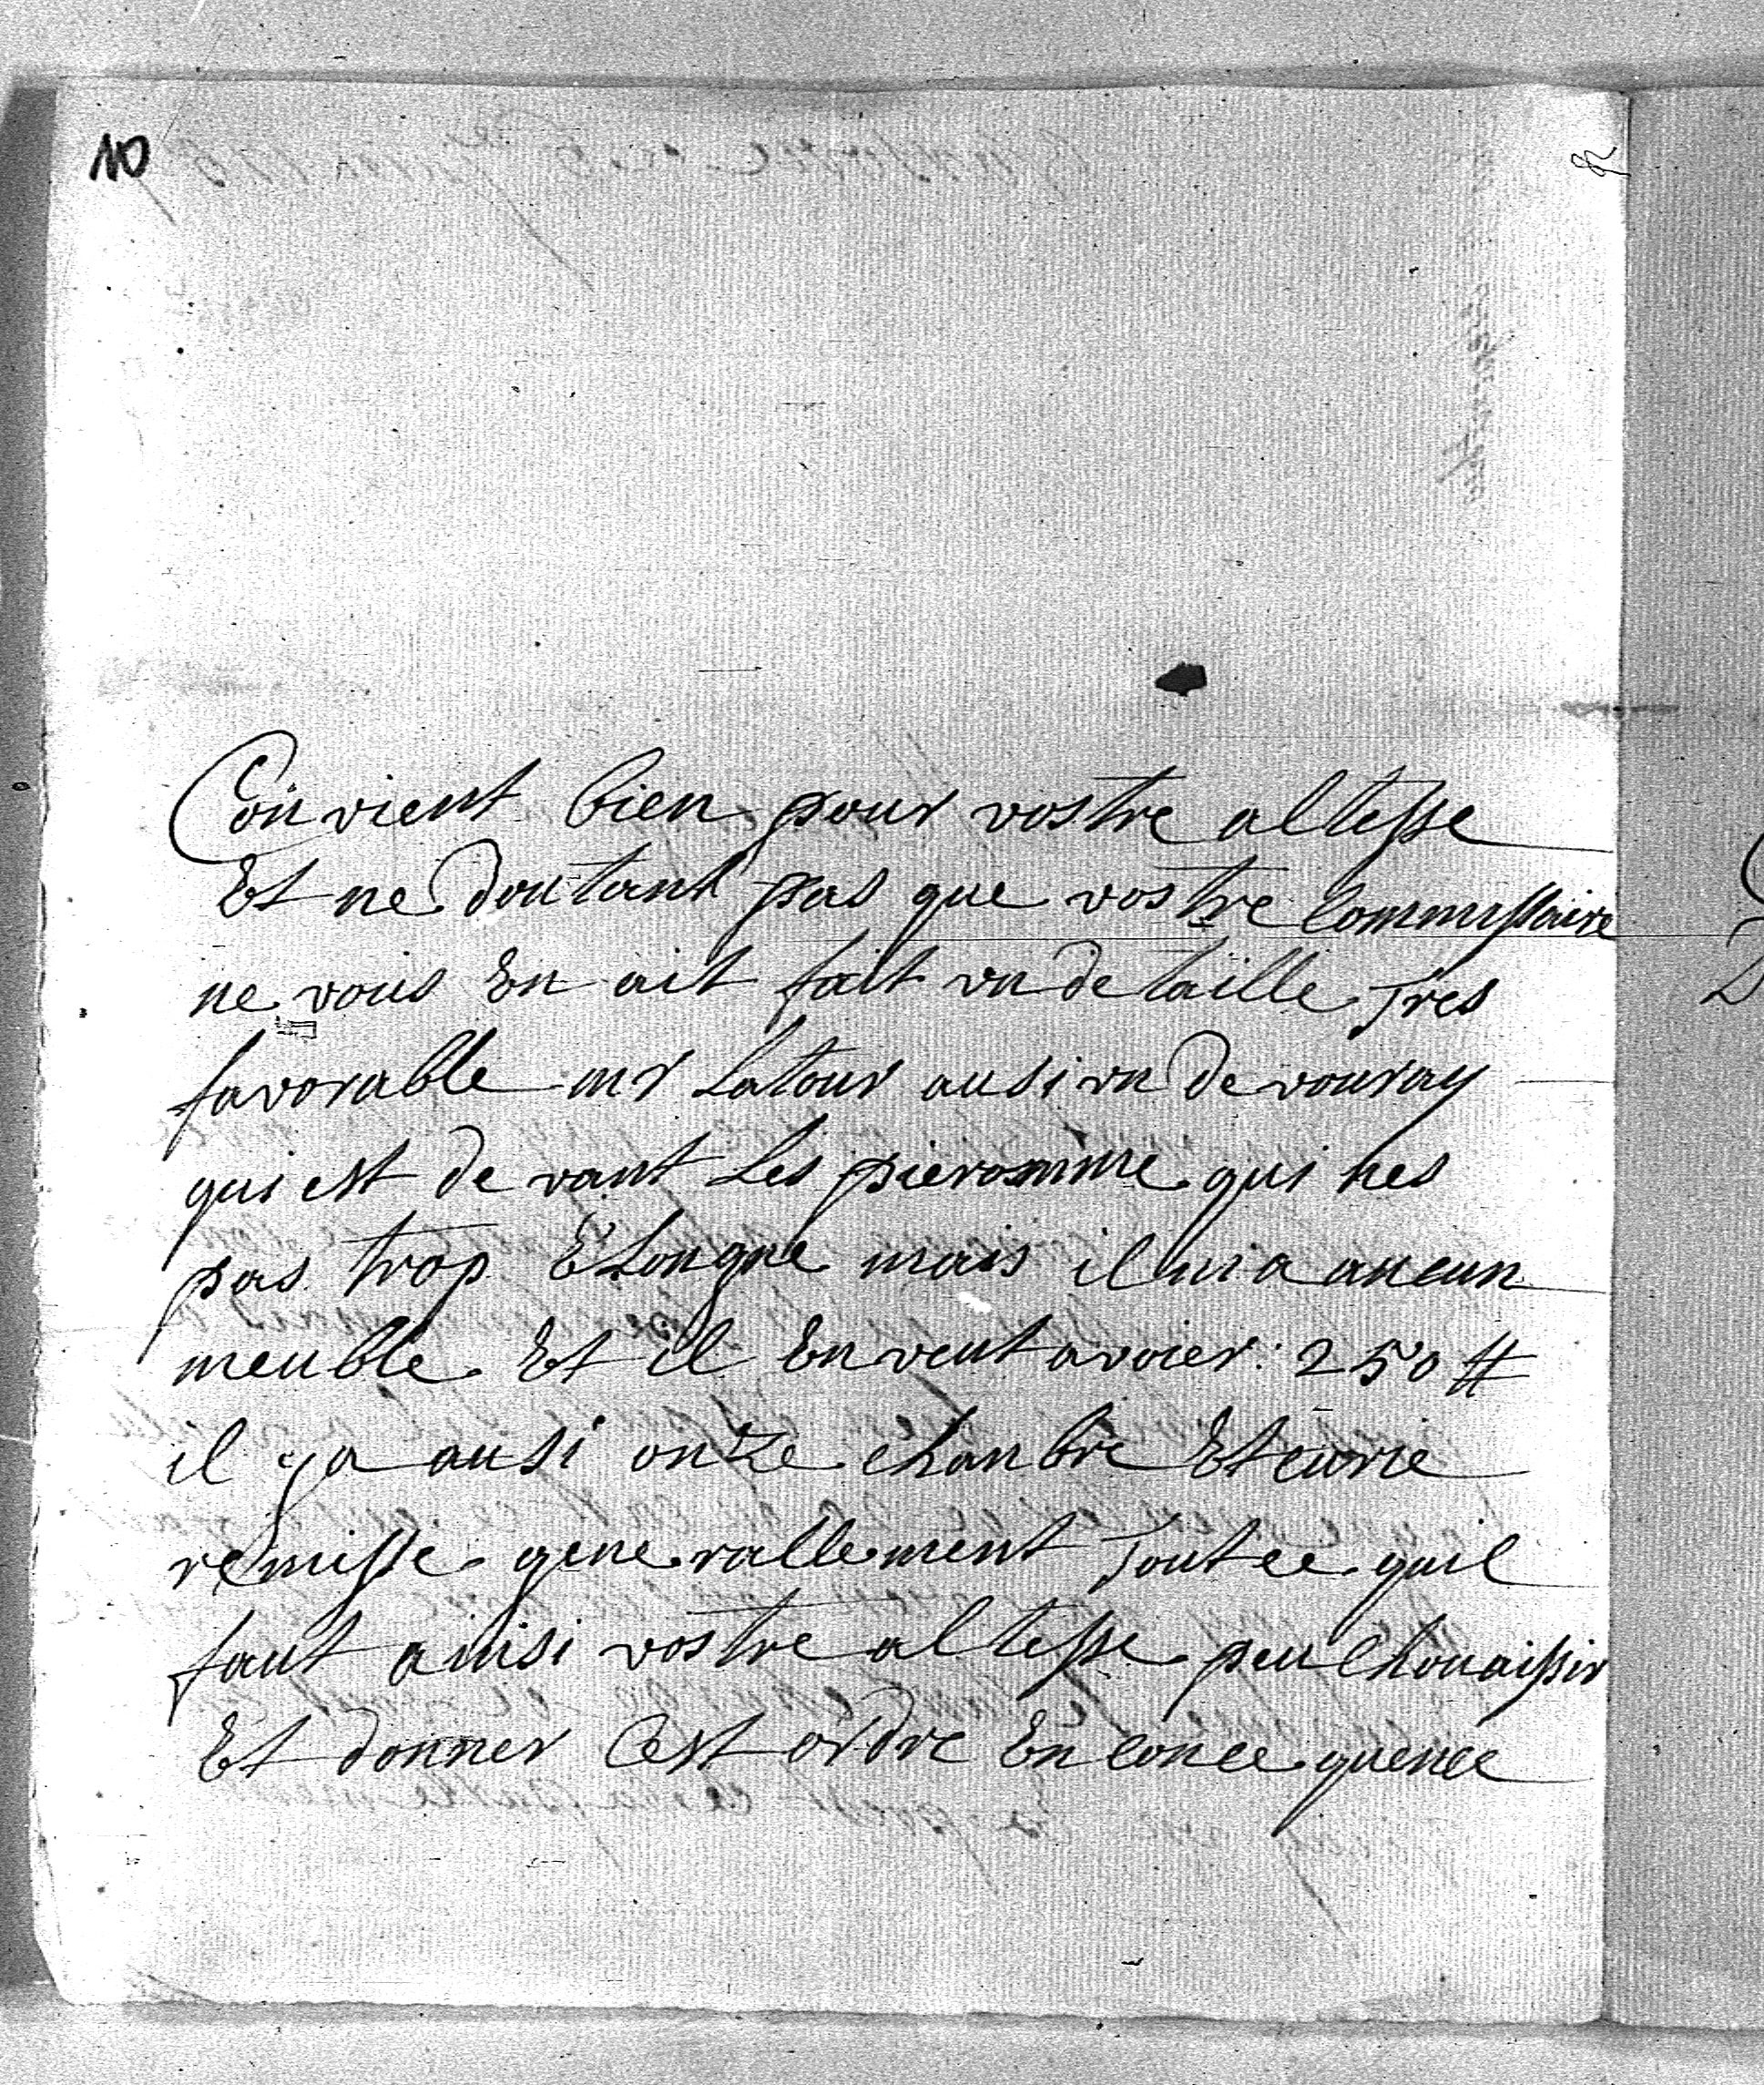 10
Convient bien pour vostre altesse
Et ne doutant pas que vostre Commissaire
ne vous En ait fait vn detaille Tres
favorable mr Latour ausi vn de vouray
qui est de vant Les pieromme qui nes
pas trop ELongne mais il nia aucun
meuble Et il En veut avoier : 250 ₶
il ya ausi onze chanbre Et curie
remisse gene rallement Tout ce quil
faut ainsi vostre altesse peu Chouaissir
Et donner Cest ordre En conce quence